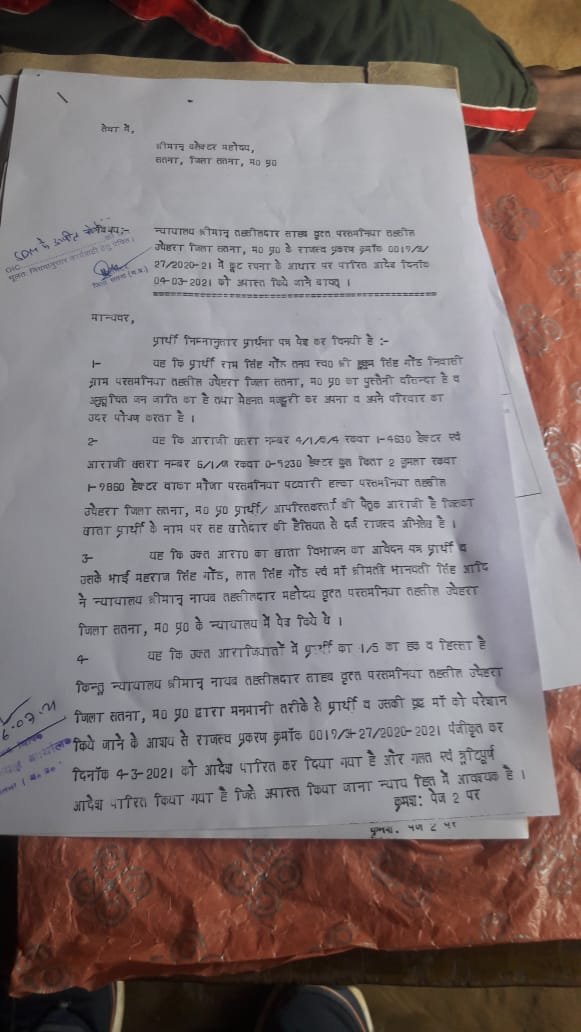 सेवा में,
श्रीमान् कलेक्टर महोदय,
सतना, जिला सतना, म0 प्र0
विषय:- न्यायालय श्रीमान् तहसीलदार साहब वृत्त परसमनिया तहसील
उचेहरा जिला सतना, म0 प्र0 के राजस्व प्रकरण क्रमाँक 0019/अ/
27/2020-21 में कूट रचना के आधार पर पारित आदेश दिनाँक
04-03-2021 को अपास्त किये जाने बावत् ।
मान्यवर,
प्रार्थी निम्नानुसार प्रार्थना पत्र पेश कर विनयी है :-
1- यह कि प्रार्थी राम सिंह गोंड तनय स्व0 श्री सिंह गोंड निवासी
ग्राम परसमनिया तहसील उचेहरा जिला सतना, म0 प्र0 का पुस्तैनी वासिन्दा है व
अनुसूचित जन जाति का है तथा मेहनत मजदूरी कर अपना व अपने परिवार का
उदर पोषण करता है ।
2- यह कि आराजी खसरा नम्बर रकवा 1-4630 हेक्टर एवं
आराजी खसरा नम्बर रकवा 0-5230 हेक्टर कुल किता 2 जुमला रकवा
1-9860 हेक्टर वाका मौजा परसमनिया पटवारी हल्का परसमनिया तहसील
उचेहरा जिला सतना, म0 प्र0 प्रार्थी/ आपत्तिकर्ता की पैतृक आराजी है जिसका
खाता प्रार्थी के नाम पर सह खातेदार की हैसियत से दर्ज राजस्व अभिलेख है ।
3- यह कि उक्त आरा0 का खाता विभाजन का आवेदन पत्र प्रार्थी व
उसके भाई महराज सिंह गोंड, लाल सिंह गोंड एवं माँ श्रीमती भानवती सिंह आदि
ने न्यायालय श्रीमान् नायब तहसीलदार महोदय वृत्त परसमनिया तहसील उचेहरा
जिला सतना, म0 प्र0 के न्यायालय में पेश किये थे ।
4- यह कि उक्त आराजियातों में प्रार्थी का 1/5 का हक व हिस्सा है
किन्तु न्यायालय श्रीमान् नायब तहसीलदार साहब वृत्त परसमनिया तहसील उचेहरा
जिला सतना, म0 प्र0 द्वारा मनमानी तरीके से प्रार्थी व उसकी वृद्ध माँ को परेशान
किये जाने के आशय से राजस्व प्रकरण क्रमाँक 0019/अ-27/2020-2021 पंजीकृत कर
दिनाँक 4-3-2021 को आदेश पारित कर दिया गया है और गलत एवं त्रुटिपूर्ण
आदेश पारित किया गया है जिसे अपास्त किया जाना न्याय हित में आवश्यक है ।
क्रमश: पेज 2 पर
क्रमश. पेज 2 पर